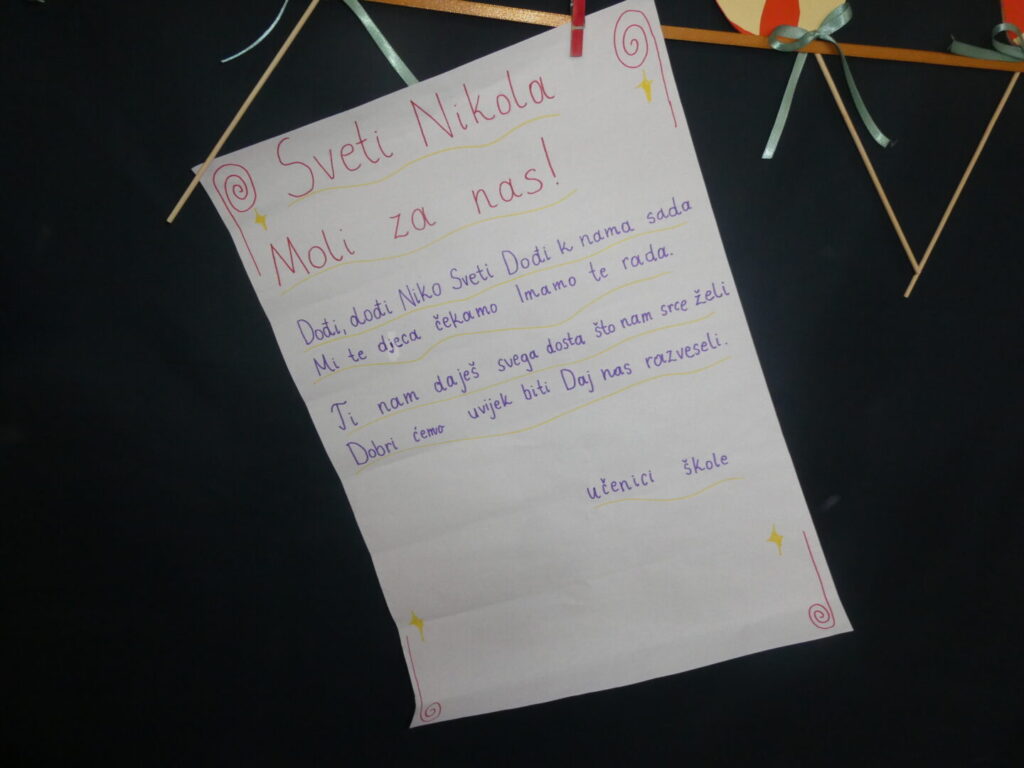 Sveti Nikola
Moli za nas!
Dođi, dođi Niko Sveti Dođi k nama sada
Mi te djeca čekamo Imamo te rada.
Ti nam daješ svega dosta što nam srce želi
Dobri ćemo uvijek biti Daj nas razveseli.
učenici škole